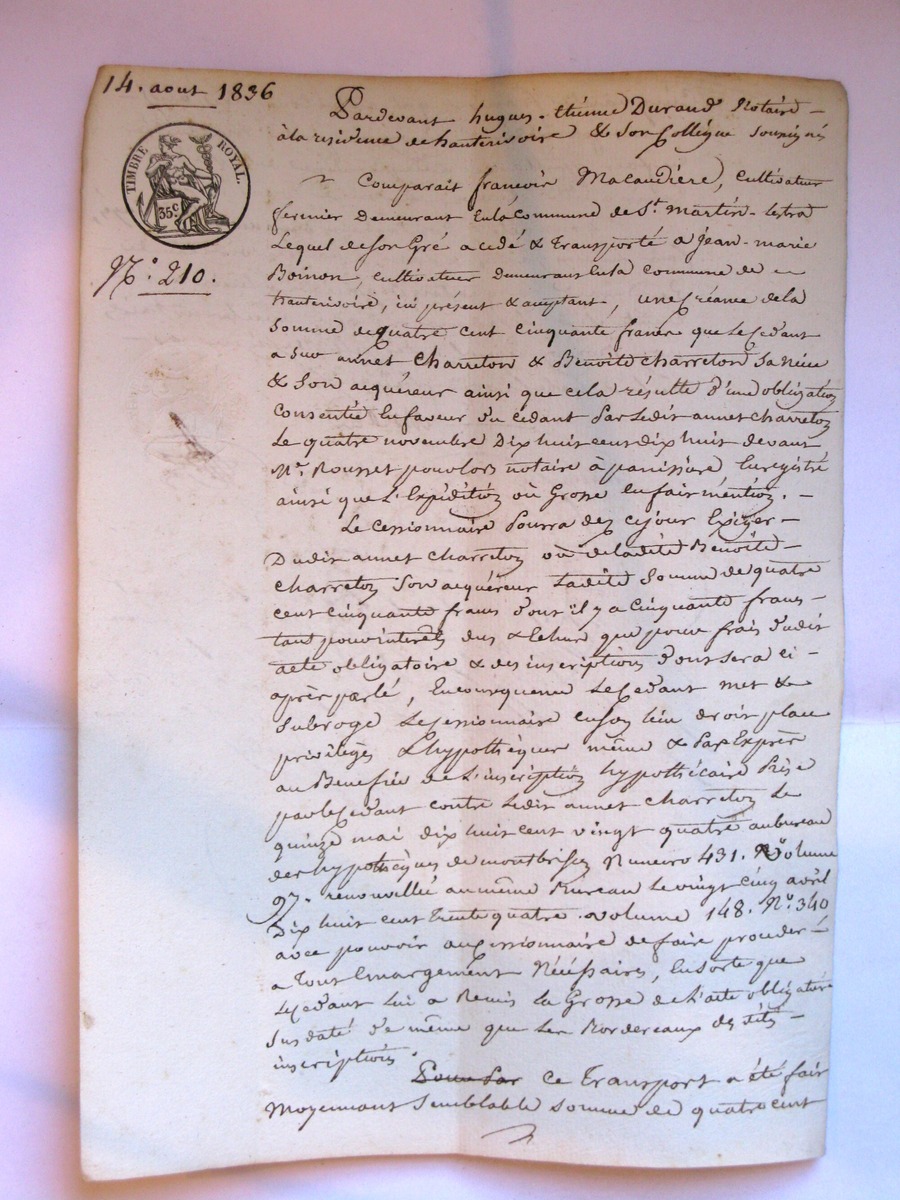 14. aout 1836
TIMBRE ROYAL.
35c
N°. 210.
Pardevant hugues-thiene Durand Notaire –
à la residence de hauterivoire & Son Collègue soussignés
Comparait francois Macaudiere, cultivateur
fermier demeurant En la Commune de St. Martin-Lestra
Lequel de son Gré a cedé & Transporté a Jean-marie
Boinon, cultivateur demeurant En la commune de
hauterivoire, ici présent & acceptant, une Créance de la
Somme de quatre cent cinquante francs que le Cedant
a sur annet Charreton & Benoite charreton sa Nièce
& Son acquéreur ainsi que cela résulte d'une obligation
Consentie En faveur du cédant Par Ledit annet charreton
Le quatre novembre Dix huit cent dix huit devant
Me. Rousset pour lors notaire à panissiere Enregistré
ainsi que L'Expédition où Grosse En fait mention. –
Le Cessionnaire Pourra dez ce jour Exiger –
Dudit annet charreton où de ladite Benoite –
charreton Son acquéreur Ladite Somme de quatre
cent cinquante francs dont il y a Cinquante francs –
tant pour interets dus & Echus que pour frais dudit
acte obligatoire & des inscriptions dont sera ci –
après parlé, En consequence Le Cedant met &
Subroge Le Cessionnaire En son lieu droit place
privilèges & hypothèques même & Par Exprès
au Benefice de L'inscription hypothécaire Prise
par le Cedant contre Ledit annet charreton Le
quinze mai dix huit cent vingt quatre au bureau
des hypothèques de montbrison Numero 431. Volume
97. renouvellée au même Bureau Le vingt cinq avril
Dix huit cent Trente quatre. volume 148. N°. 340
avec pouvoir au Cessionnaire de faire proceder –
a Tout Emargement Nécéssaires, En sorte que
Le Cedant Lui a Remis La Grosse de L'acte obligatoire
Sus daté de même que Les Bordereaux desdites –
inscriptions.
Pour Par ce Transport a été fait
Moyennant Semblable Somme de quatre cent